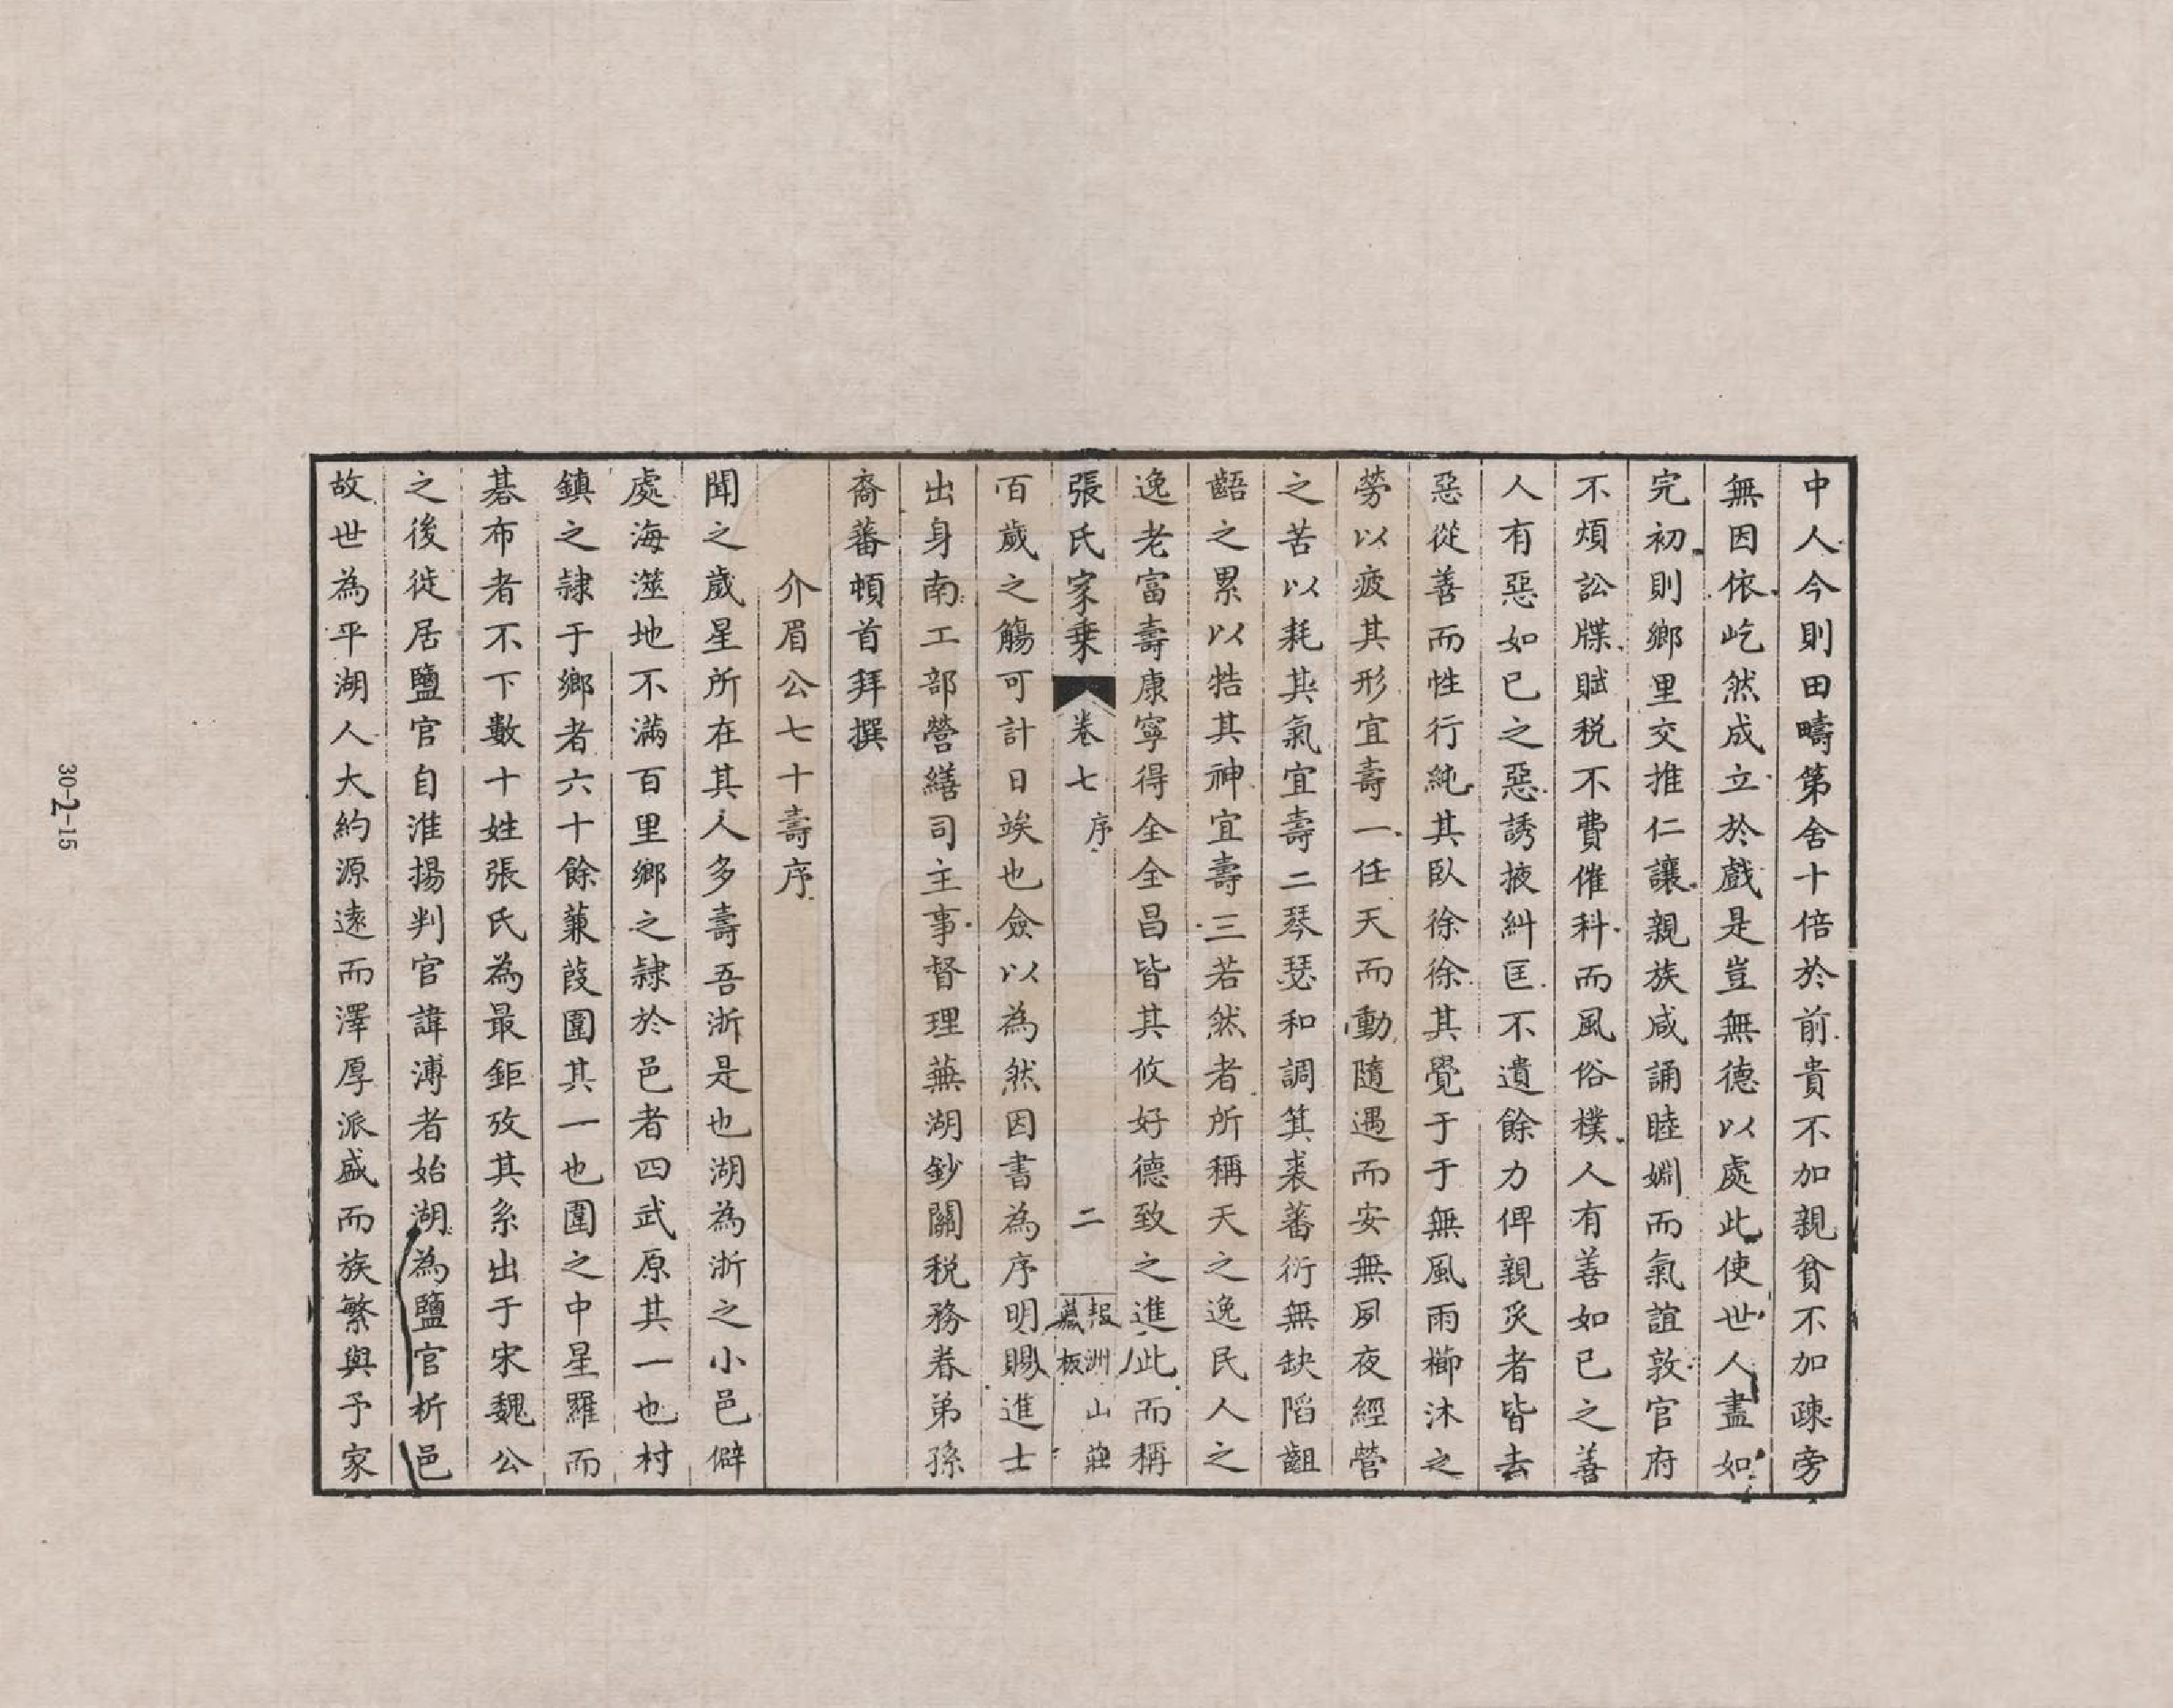 中人今則田疇第舍十倍於前貴不加親貧不加疎旁
無因依屹然成立於戲是豈無德以處此使世人盡如
完初則鄉里交推仁讓親族咸誦睦婣而氣誼敦官府
不煩訟牒賦税不費催科而風俗樸人有善如已之善
人有惡如已之惡誘掖糾匡不遺餘力俾親炙者皆去
惡從善而性行純其臥徐徐其覺于于無風雨櫛沐之
勞以疲其形宜壽一任天而動隨遇而安無夙夜經營
之苦以耗其氣宜壽二琴瑟和調箕裘蕃衍無缺陷齟
齬之累以牿其神宜壽三若然者所稱天之逸民人之
逸老富壽康寧得全全昌皆其攸好德致之進此而稱
張氏家乘 卷七 序 二 報洲山莊藏板
百歲之觴可計日竢也僉以為然因書為序明賜進士
出身南工部營繕司主事督理蕪湖鈔關税務眷弟孫
裔蕃頓首拜撰
介眉公七十壽序
聞之歲星所在其人多壽吾浙是也湖為浙之小邑僻
處海澨地不滿百里鄉之隷於邑者四武原其一也村
鎮之隷于鄉者六十餘蒹葭圍其一也圍之中星羅而
碁布者不下數十姓張氏為最鉅攷其系出于宋魏公
之後徙居鹽官自淮揚判官諱溥者始湖為鹽官析邑
故世為平湖人大約源遠而澤厚派盛而族繁與予家
30-2-15